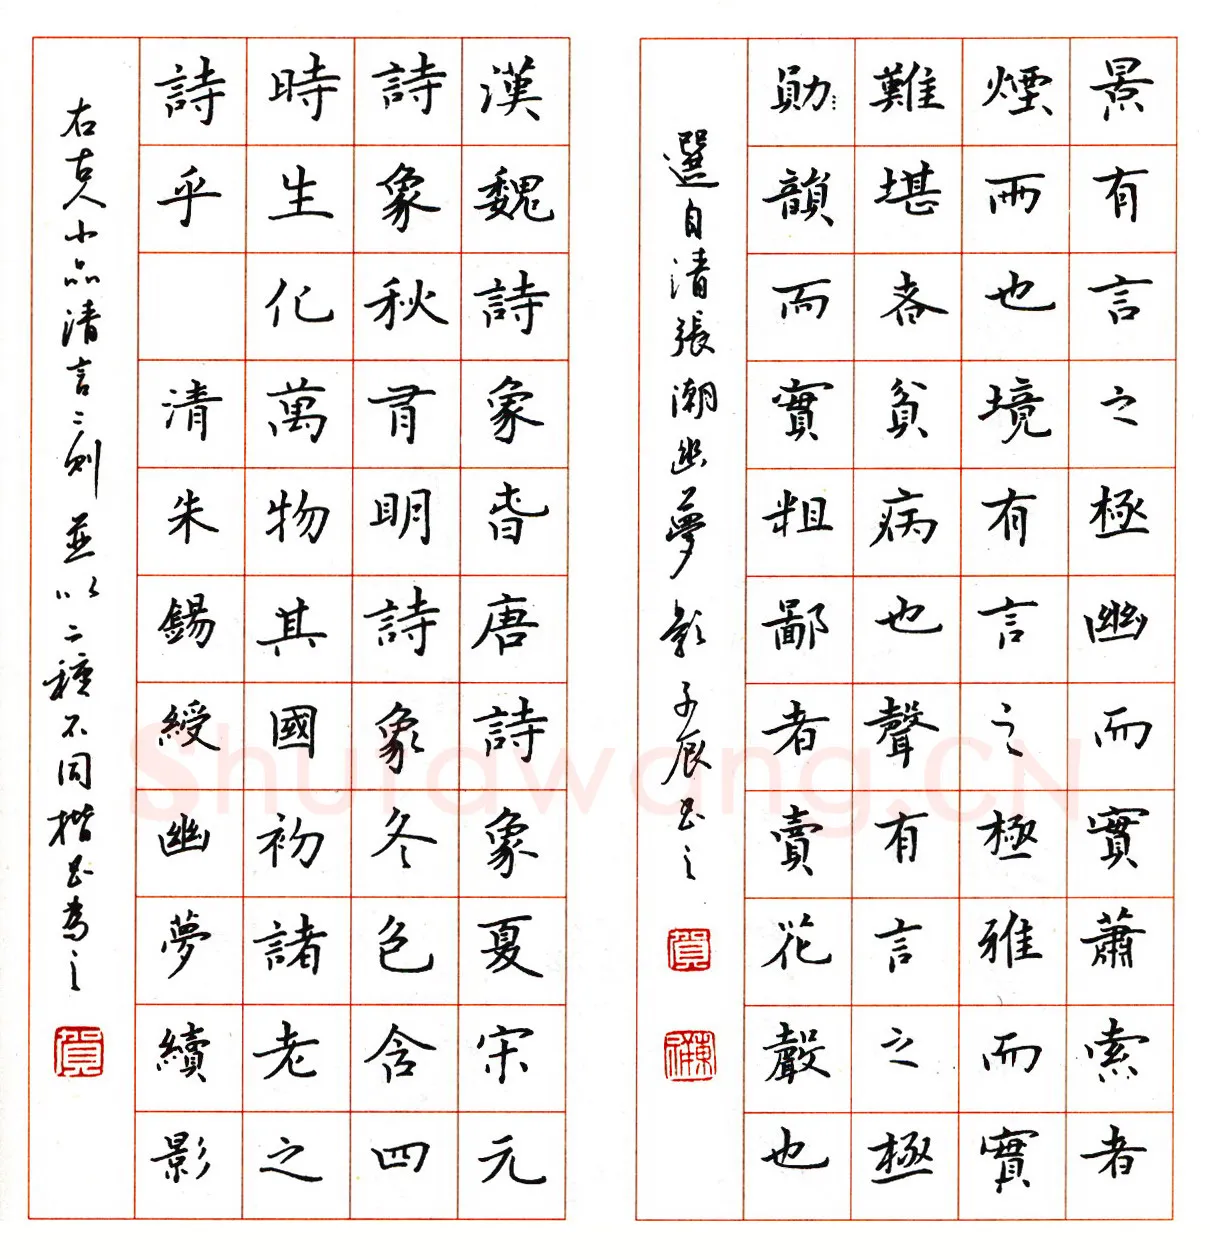 景有言之極幽而實蕭索者
煙雨也境有言之極雅而實
難堪者貧病也聲有言之極
勛韻而實粗鄙者賣花聲也
選自清張潮幽夢影 子辰書之
賀
漢魏詩象春唐詩象夏宋元
詩象秋有明詩象冬色含四
時生化萬物其國初諸老之
詩乎 清朱錫綬幽夢續影
右古人小品清言二則 並以二種不同楷書為之
賀
Shufawang.CN